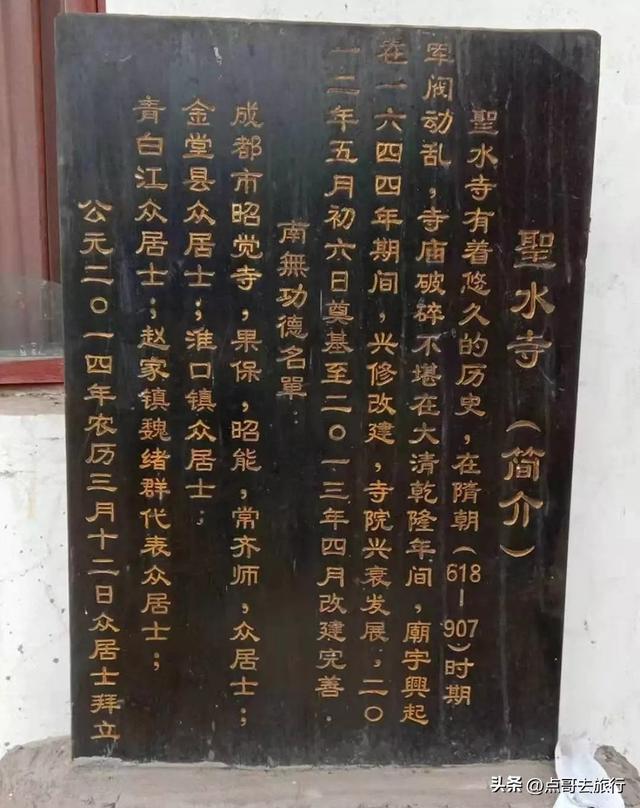 聖水寺（简介）
聖水寺有着悠久的历史，在隋朝（618－907）时期
军阀动乱，寺庙破碎不堪在大清乾隆年间，廟宇興起
在一六四四年期间，兴修改建，寺院兴衰发展，二〇
一二年五月初六日奠基至二〇一三年四月改建完善．
南無功德名單：
成都市昭觉寺，果保，昭能，常齐师，众居士；
金堂县众居士；淮口镇众居士；
青白江众居士；赵家镇魏绪群代表众居士；
公元二〇一四年农历三月十二日众居士拜立
头条 @点哥去旅行